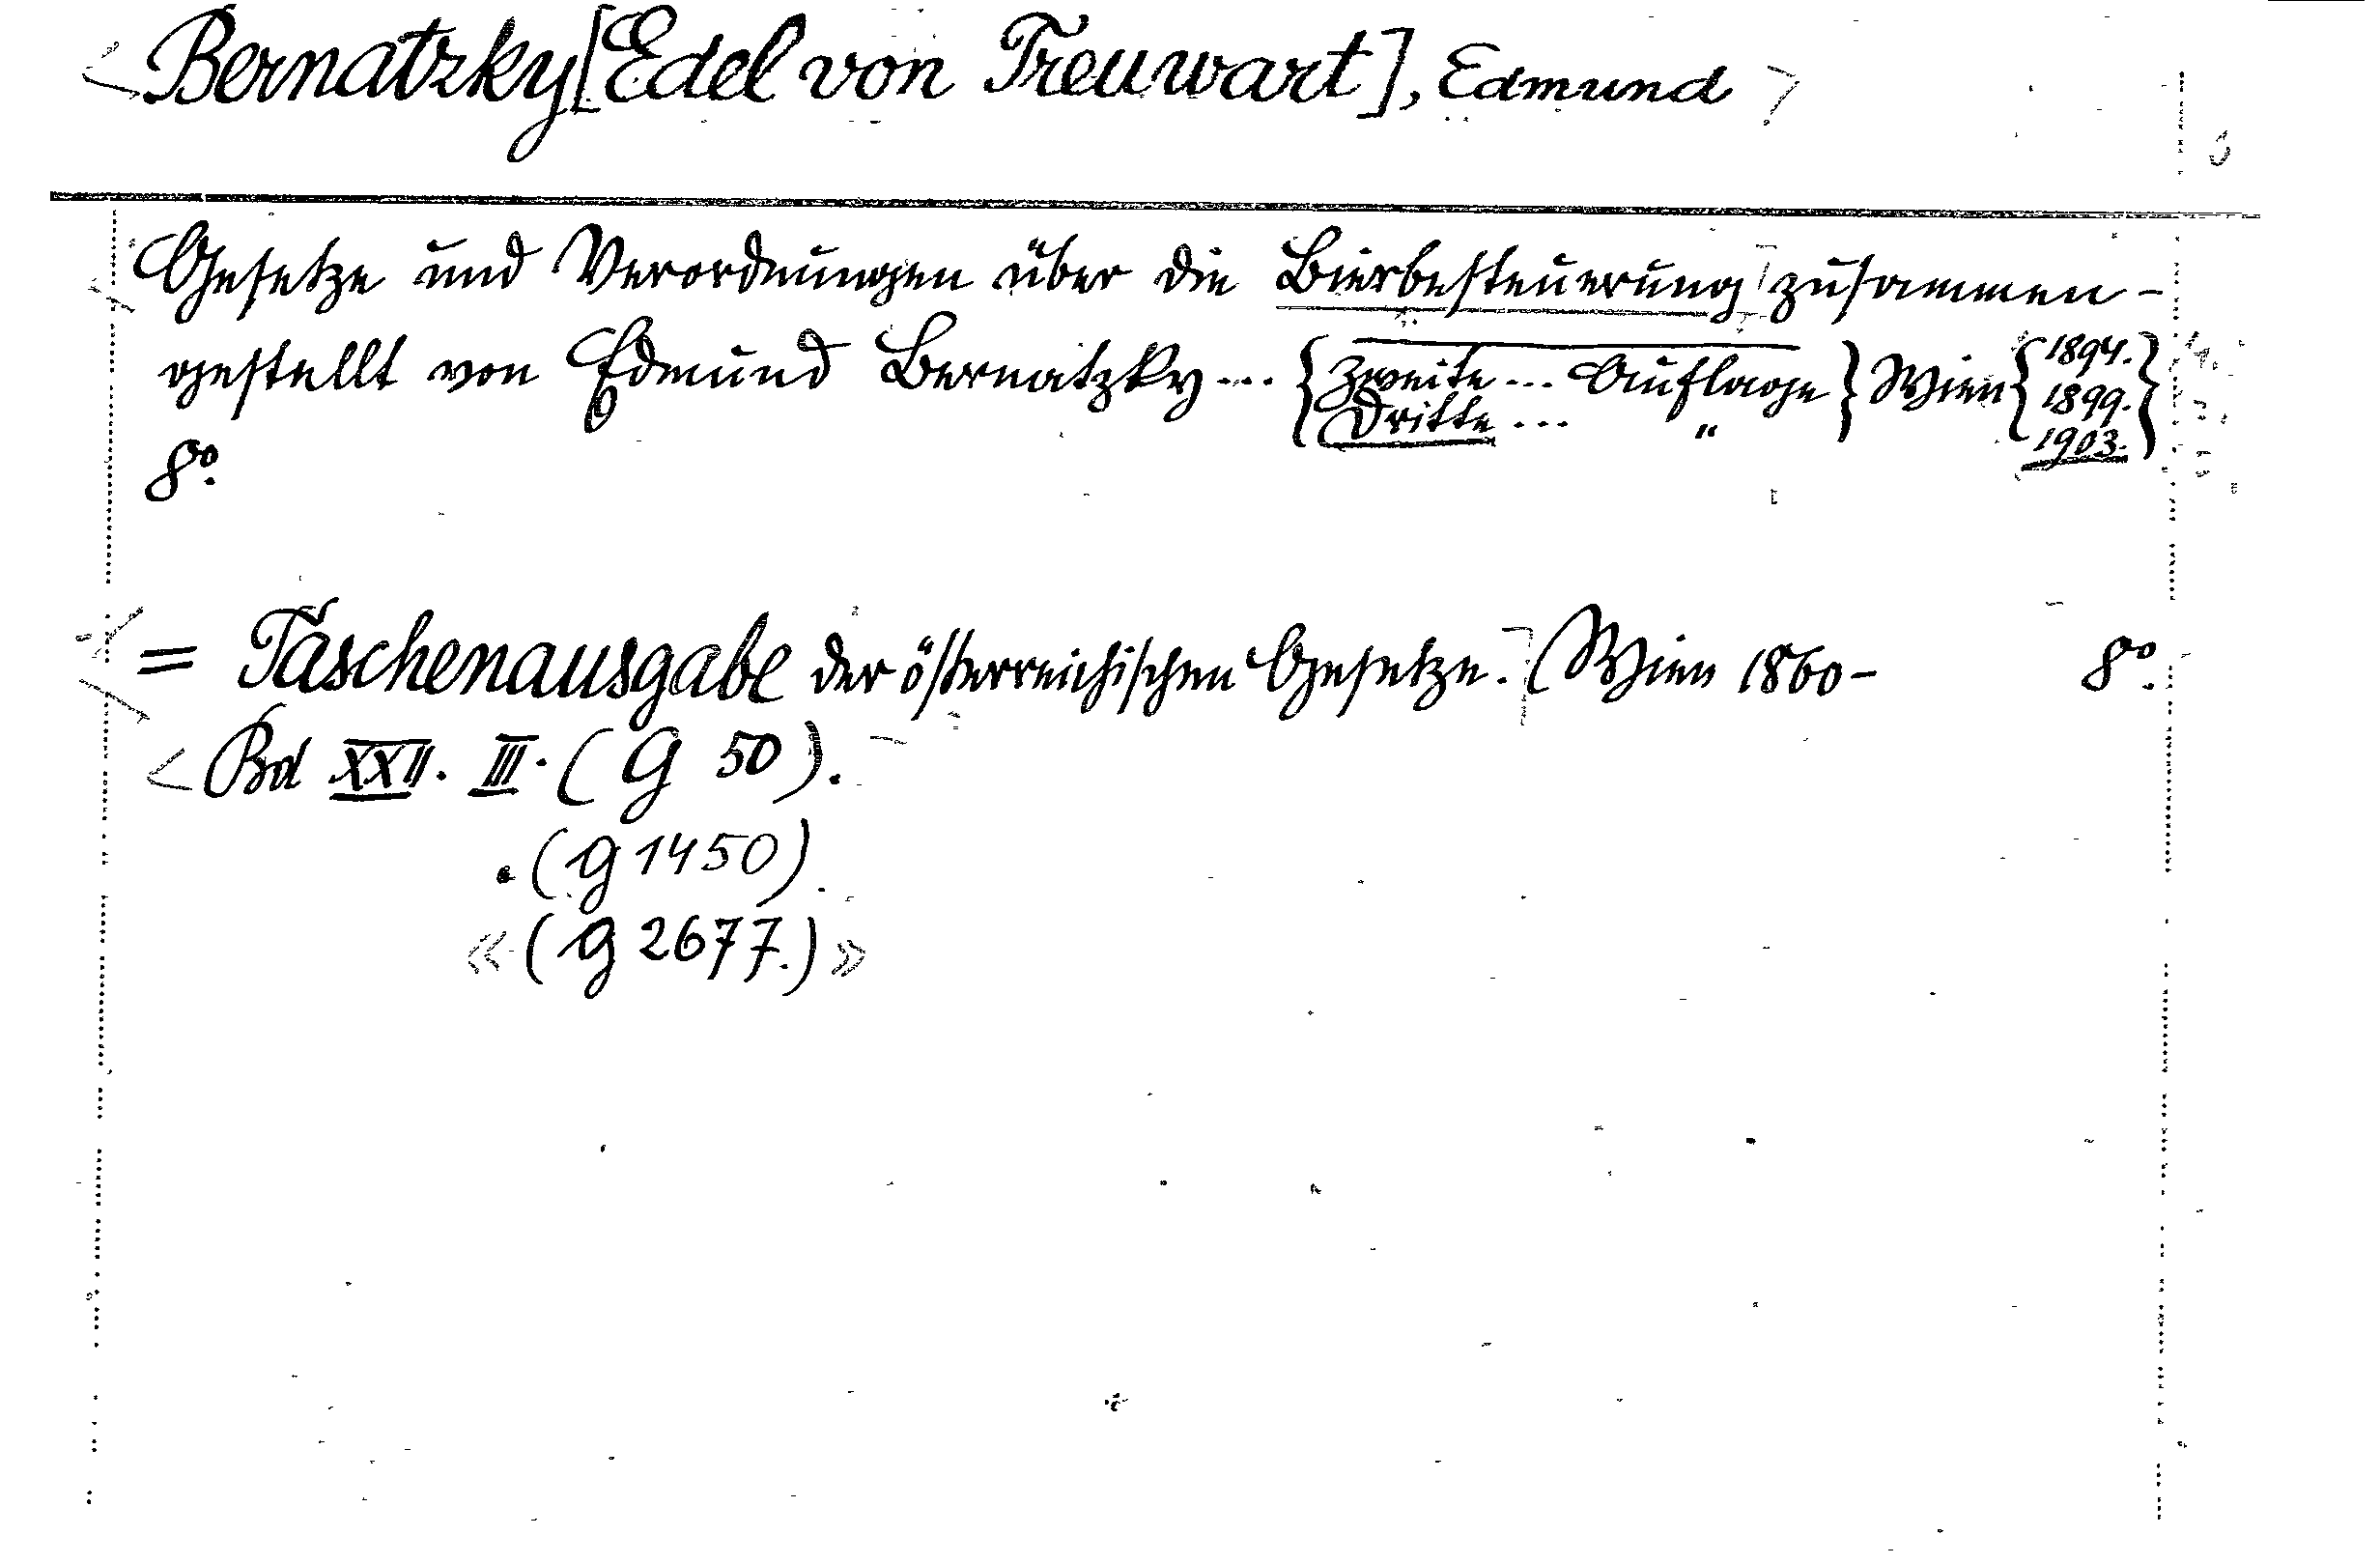 <Bernatzky [Edel von Treuwart], Edmund>
Gesetze und Verordnungen über die Bierbesteuerung zusammen-
gestellt von Edmund Bernatzky ... { Zweite ... Auflage } Wien { 1894. }
Dritte ... " 1899.
1903.
8º.
= Taschenausgabe der österreichischen Gesetze. (Wien 1860- 8º.
<Bd XXII. III. (G 50).
.(G 1450).
«(G 2677.)»